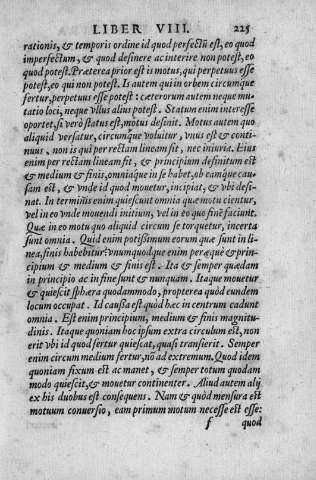 LIBER VIII. 225
rationis, & temporis ordine id quod perfectũ est, eo quod
imperfectum, & quod desinere ac interire non potest, eo
quod potest. Præterea prior est is motus, qui perpetuus esse
potest, eo qui non potest. Is autem qui in orbem circumque
fertur, perpetuus esse potest: cæterorum autem neque mu-
tatio loci, neque vllus alius potest. Statum enim interesse
oportet, si verò status est, motus desinit. Motus autem quo
aliquid versatur, circumq́ue voluitur, vnus est & conti-
nuus, non is qui per rectam lineam fit, nec iniuria. Eius
enim per rectam lineam fit, & principium definitum est
& medium & finis, omniaq́ue in se habet, ob eamque cau-
sam est, & vnde id quod mouetur, incipiat, & vbi desi-
nat. In terminis enim quiescunt omnia quæ motu cientur,
vel in eo vnde mouendi initium, vel in eo quo finẽ faciunt.
Quæ in eo motu quo aliquid circum se torquetur, incerta
sunt omnia. Quid enim potissimum eorum quæ sunt in li-
nea, finis habebitur? vnumquodque enim peræquè & prin-
cipium & medium & finis est. Ita & semper quædam
in principio ac in fine sunt & nunquam. Itaque mouetur
& quiescit sphæra quodammodo, propterea quòd eundem
locum occupat. Id caussa est quòd hæc in centrum cadunt
omnia. Est enim principium, medium & finis magnitu-
dinis. Itaque quoniam hoc ipsum extra circulum est, non
erit vbi id quod fertur quiescat, quasi transierit. Semper
enim circum medium fertur, nõ ad extremum. Quod idem
quoniam fixum est ac manet, & semper totum quodam
modo quiescit, & mouetur continenter. Aliud autem alij
ex his duobus est consequens. Nam & quòd mensura est
motuum conuersio, eam primum motum necesse est esse:
f quod